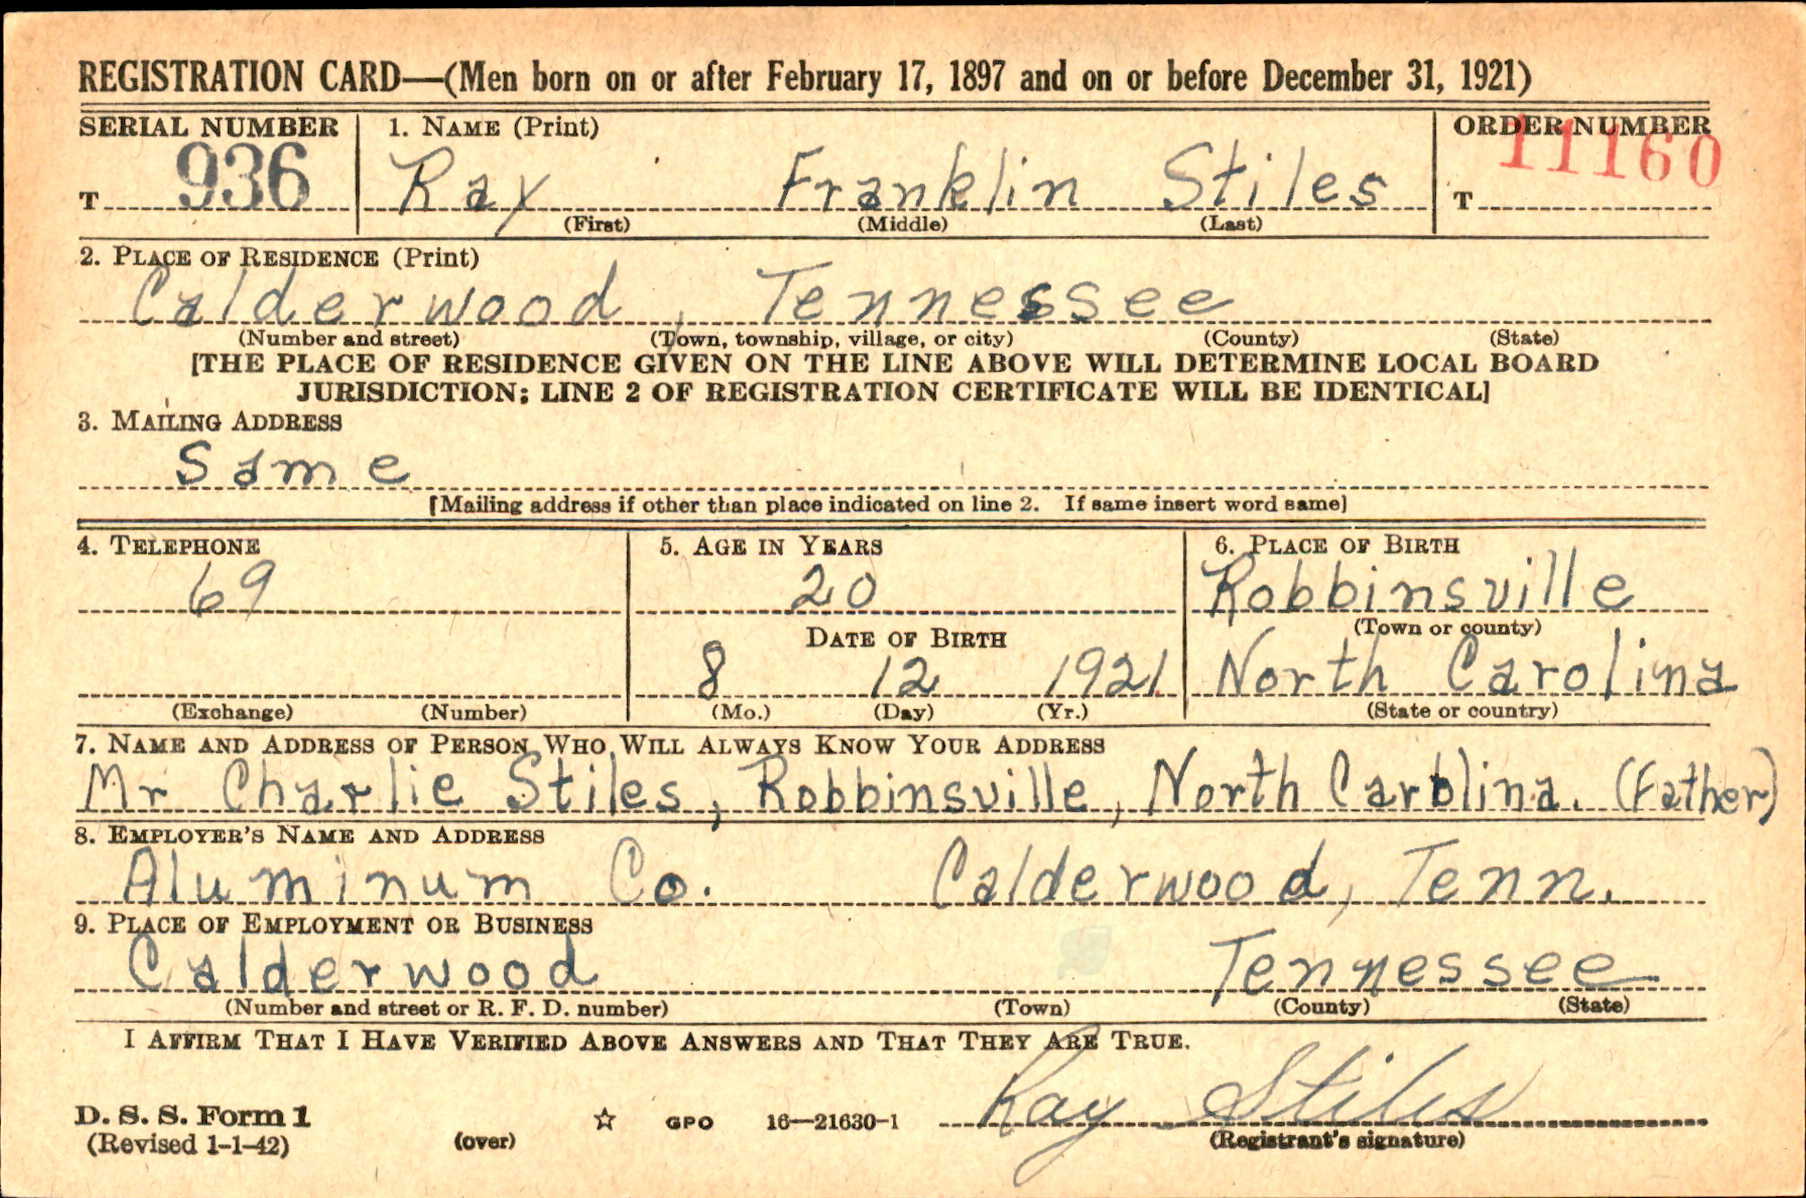 REGISTRATION CARD—(Men born on or after February 17, 1897 and on or before December 31, 1921)
SERIAL NUMBER 1. NAME (Print) ORDER NUMBER
T 936 Ray Franklin Stiles T 11160
(First) (Middle) (Last)
2. PLACE OF RESIDENCE (Print)
Calderwood, Tennessee
(Number and street) (Town, township, village, or city) (County) (State)
[THE PLACE OF RESIDENCE GIVEN ON THE LINE ABOVE WILL DETERMINE LOCAL BOARD
JURISDICTION; LINE 2 OF REGISTRATION CERTIFICATE WILL BE IDENTICAL]
3. MAILING ADDRESS
Same
[Mailing address if other than place indicated on line 2. If same insert word same]
4. TELEPHONE 5. AGE IN YEARS 6. PLACE OF BIRTH
69 20 Robbinsville
DATE OF BIRTH (Town or county)
8 12 1921 North Carolina
(Exchange) (Number) (Mo.) (Day) (Yr.) (State or country)
7. NAME AND ADDRESS OF PERSON WHO WILL ALWAYS KNOW YOUR ADDRESS
Mr Charlie Stiles, Robbinsville, North Carolina. (Father)
8. EMPLOYER'S NAME AND ADDRESS
Aluminum Co. Calderwood, Tenn.
9. PLACE OF EMPLOYMENT OR BUSINESS
Calderwood Tennessee
(Number and street or R. F. D. number) (Town) (County) (State)
I AFFIRM THAT I HAVE VERIFIED ABOVE ANSWERS AND THAT THEY ARE TRUE.
D. S. S. Form 1 ☆ GPO 16—21630-1 Ray Stiles
(Revised 1-1-42) (over) (Registrant's signature)